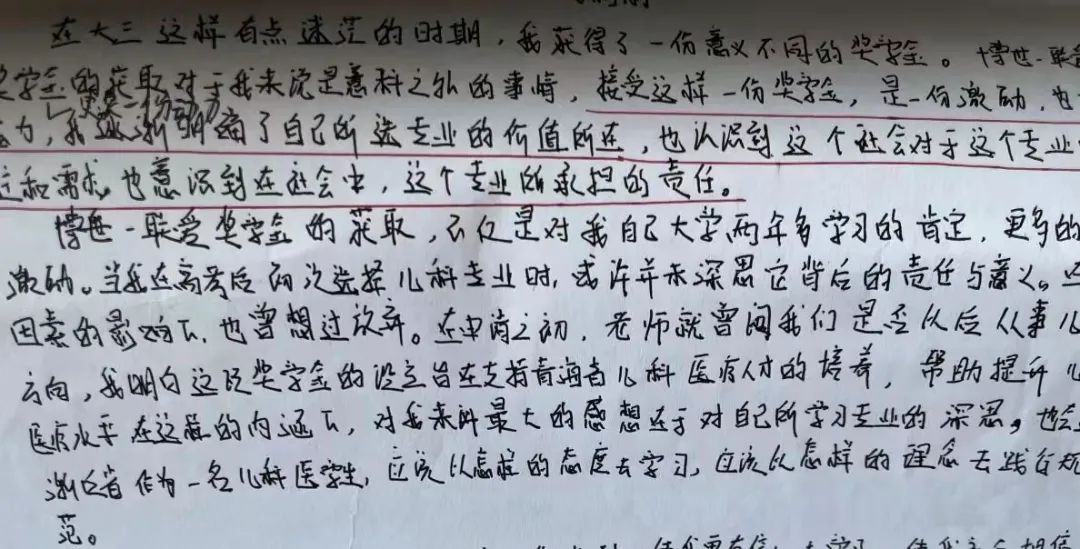 在大三这样有点迷茫的时期，我获得了一份意义不同的奖学金。博世-联
奖学金的获取对于我来说是意料之外的事情，接受这样一份奖学金，是一份激励，也
更是一份动力
力，我逐渐明确了自己所选专业的价值所在，也认识到这个社会对于这个专业
和需求，也意识到在社会中，这个专业所承担的责任。
博世-联爱奖学金的获取，不仅是对我自己大学两年多学习的肯定，更多的
激励。当我在高考后两次选择儿科专业时，或许并未深思它背后的责任与意义。
因素的影响下，也曾想过放弃。在申请之初，老师就曾问我们是否从后从事儿
方向，我明白这项奖学金的设立旨在支持青海省儿科医疗人才的培养，帮助提升儿
医疗水平 在这样的内涵下，对我来讲最大的感想在于对自己所学习专业的深思，也会
作为一名儿科医学生，应该以怎样的态度去学习，应该以怎样的理念去践行规
范。